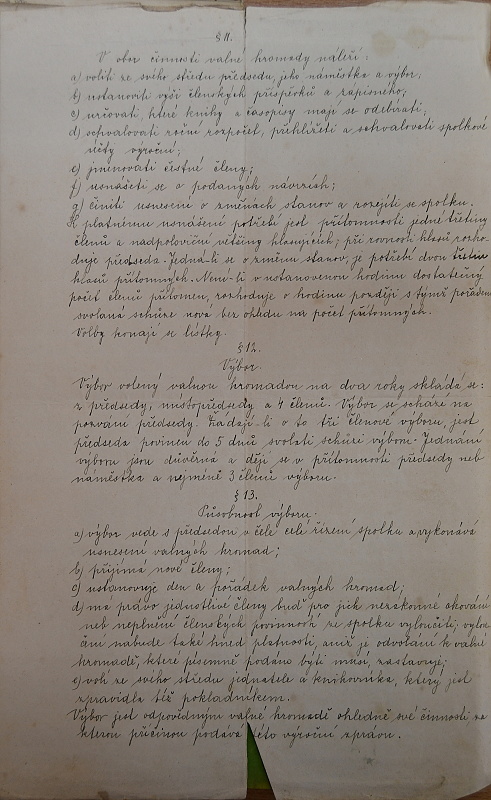 § 11.
V obor činnosti valné hromady náleží:
a) voliti ze svého středu předsedu, jeho náměstka a výbor;
b) ustanoviti výši členských příspěvků a zápisného;
c) určovati, které knihy a časopisy mají se odebírati;
d) schvalovati roční rozpočet, přehlížeti a schvalovati spolkové
účty výroční;
e) jmenovati čestné členy;
f) usnášeti se o podaných návrzích;
g) činiti usnesení o změnách stanov a rozejíti se spolku.
K platnému usnášení potřebí jest přítomnosti jedné třetiny
členů a nadpoloviční většiny hlasujících; při rovnosti hlasů rozho-
duje předseda. Jedná-li se o změnu stanov, je potřebí dvou třetin
hlasů přítomných. Není-li v ustanovenou hodinu dostatečný
počet členů přítomen, rozhoduje o hodinu později s týmž pořadem
svolaná schůze nová bez ohledu na počet přítomných.
Volby konají se lístky.
§ 12.
Výbor.
Výbor volený valnou hromadou na dva roky skládá se:
z předsedy, místopředsedy a 4 členů. Výbor se schází na
pozvání předsedy. Žádají-li o to tři členové výboru, jest
předseda povinen do 5 dnů svolati schůzi výboru. Jednání
výboru jsou důvěrná a dějí se v přítomnosti předsedy neb
náměstka a nejméně 3 členů výboru.
§ 13.
Působnost výboru:
a) výbor vede s předsedou v čele celé řízení spolku a vykonává
usnesení valných hromad;
b) přijímá nové členy;
c) ustanovuje den a pořádek valných hromad;
d) má právo jednotlivé členy buď pro jich nezákonné chování
neb neplnění členských povinností ze spolku vyloučiti; vylou-
čání nabude také hned platnosti, aniž je odvolání k valné
hromadě, které písemně podáno býti musí, zastavuje;
e) volí ze svého středu jednatele a knihovníka, který jest
zpravidla též pokladníkem.
Výbor jest odpovědným valné hromadě ohledně své činnosti za
kterou příčinou podává této výroční zprávu.